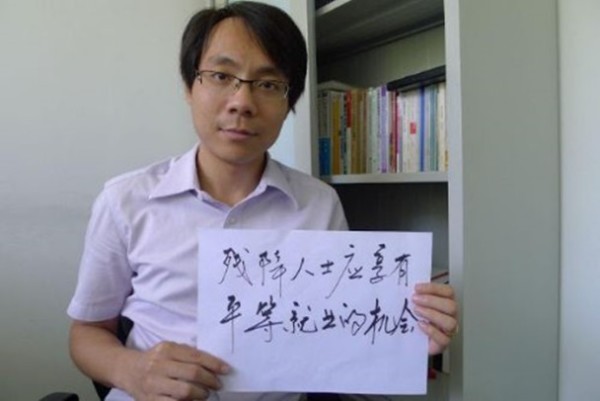 残障人士应享有
平等就业的机会